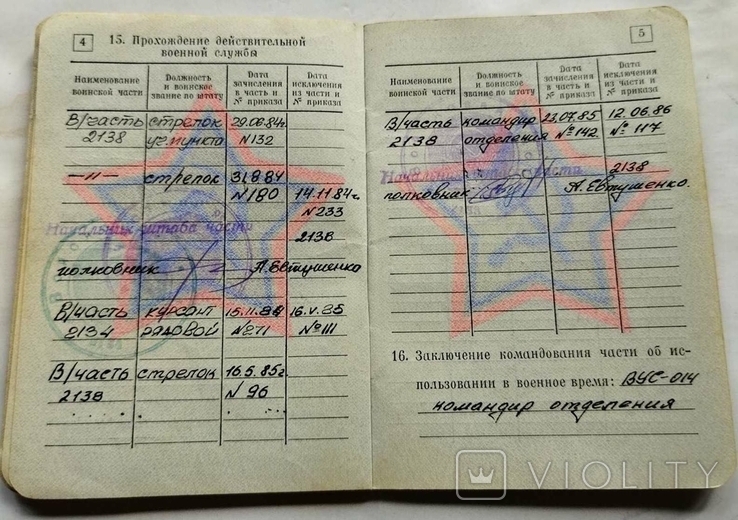 4
15. Прохождение действительной
военной службы
Наименование воинской части
Должность и воинское звание по штату
Дата зачисления в часть и № приказа
Дата исключения из части и № приказа
В/часть стрелок 29.06.84г.
2138 уч.пункта N132
—"— стрелок 31.8.84
N180 14.11.84г.
N233
Начальник штаба части
2138
полковник А.Евтушенко
В/часть курсант 15.11.84 16.V.85
2134 рядовой №271 №111
В/часть стрелок 16.5.85г.
2138 N 96
5
Наименование воинской части
Должность и воинское звание по штату
Дата зачисления в часть и № приказа
Дата исключения из части и № приказа
В/часть командир 23.07.85 12.06.86
2138 отделения №142. № 117
2138
Начальник штаба части
полковник А.Евтушенко.
16. Заключение командования части об ис-
пользовании в военное время: ВУС-014
командир отделения
VIOLITY